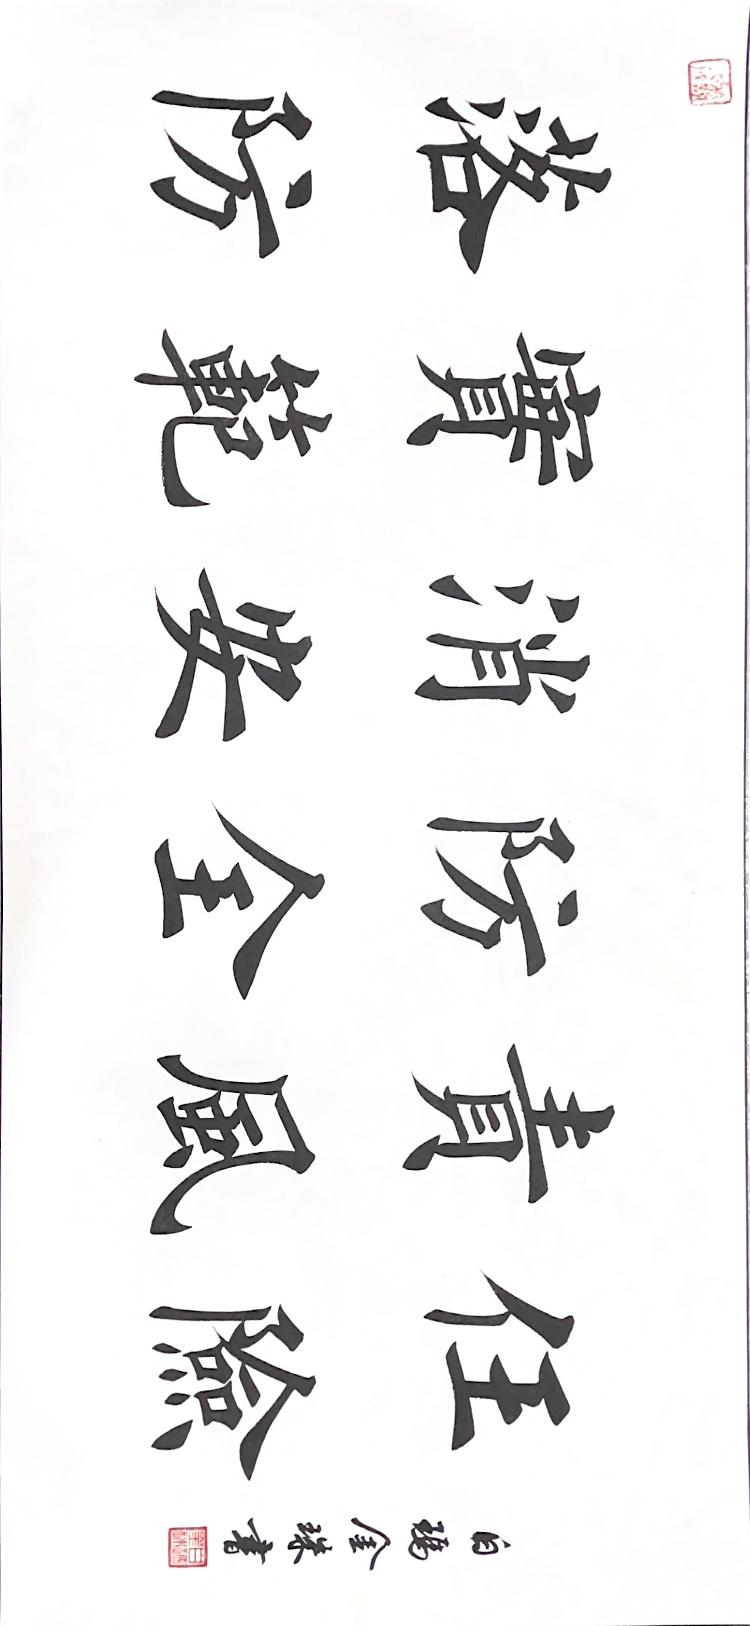 落實消防責任
防範安全風險
白瑪金珠書